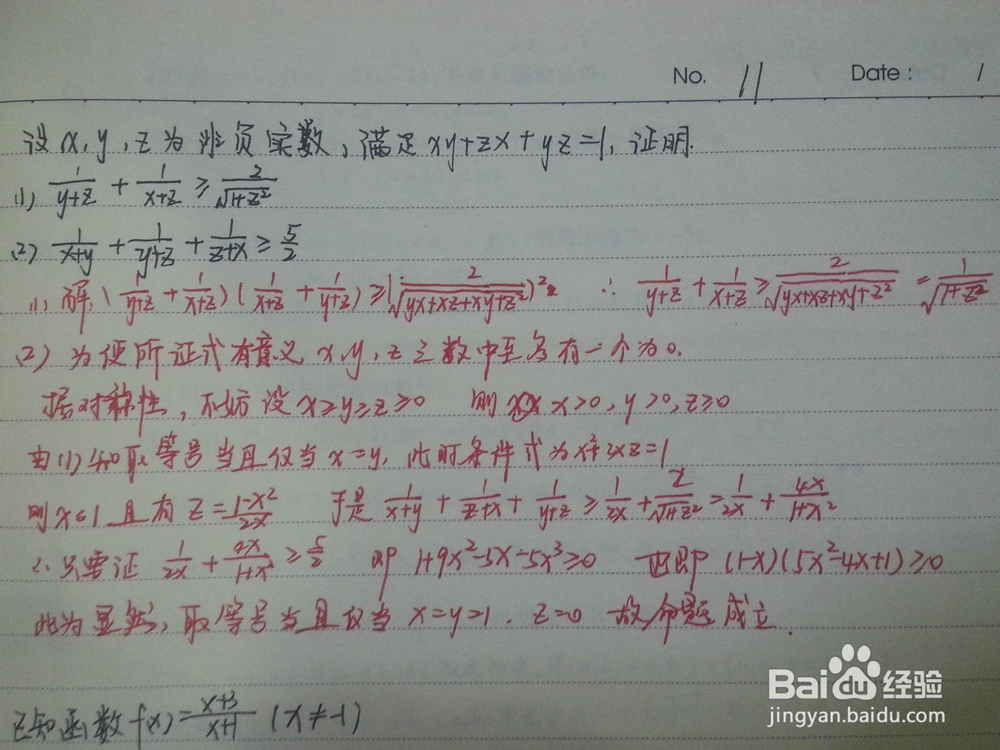 No. 11 Date: 1
设x,y,z为非负实数,满足xy+zx+yz=1,证明.
(1) 1/(y+z) + 1/(x+z) ≥ 2/√(1+z²)
(2) 1/(x+y) + 1/(y+z) + 1/(z+x) ≥ 5/2
(1) 解: (1/(y+z) + 1/(x+z)) (1/(x+z) + 1/(y+z)) ≥ (2/√(yx+xz+xy+z²))² ∴ 1/(y+z) + 1/(x+z) ≥ 2/√(yx+xz+xy+z²) = 1/√(1+z²)
(2) 为使所证式有意义,x,y,z三数中至多有一个为0.
据对称性,不妨设x≥y≥z≥0 则x>0,y>0,z≥0
由(1)知取等号当且仅当x=y,此时条件式为x²+2xz=1
则x≤1且有z=(1-x²)/2x 于是 1/(x+y) + 1/(z+x) + 1/(y+z) ≥ 1/2x + 2/√(1+z²) = 1/2x + 4x/(1+x²)
∴只要证 1/2x + 4x/(1+x²) ≥ 5/2 即 1+9x²-5x-5x³≥0 也即 (1-x)(5x²-4x+1)≥0
此为显然,取等号当且仅当x=y=1.z=0 故命题成立.
已知函数f(x)=(x+3)/(x+1) (x≠-1)
Baidu经验
jingyan.baidu.com